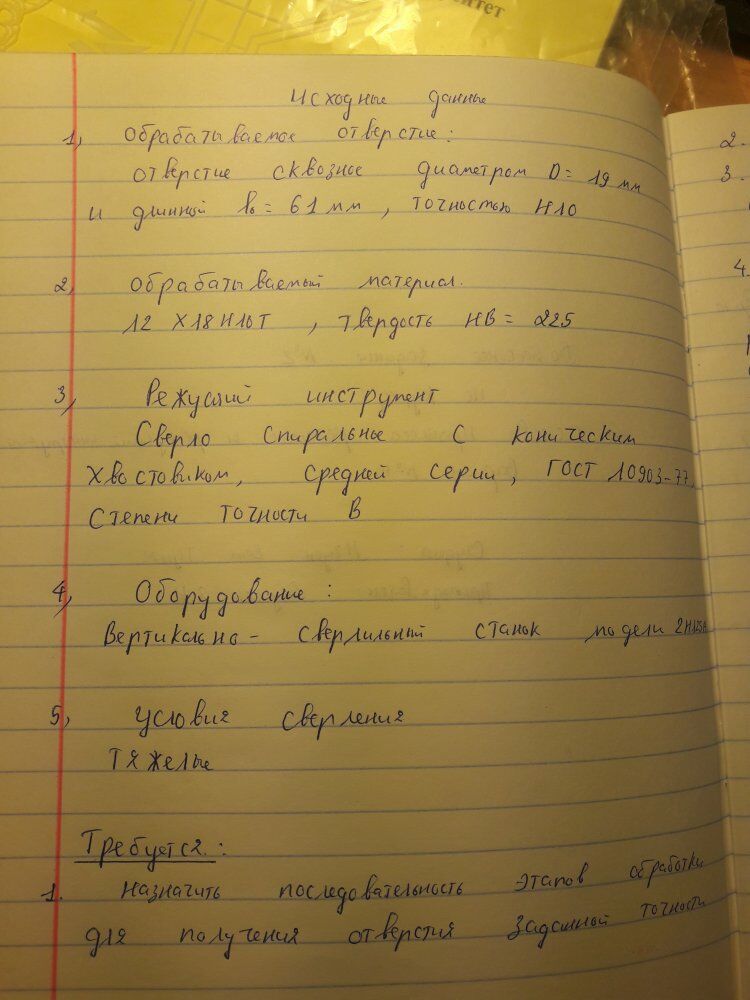 итет
Исходные данные
1, Обрабатываемое отверстие:
отверстие сквозное диаметром D= 19 мм
и длинной l₀ = 61 мм, точностью H10
2, Обрабатываемый материал.
12 Х18Н10Т, твердость HB = 225
3, Режущий инструмент
Сверло спиральные с коническим
хвостовиком, средней серии, ГОСТ 10903-77,
Степени точности В
4, Оборудование:
Вертикально-сверлильный станок модели
5, Условия сверления
Тяжелые
Требуется:
1. Назначить последовательность этапов обработки
для получения отверстия заданной точности
2.
3.
4.